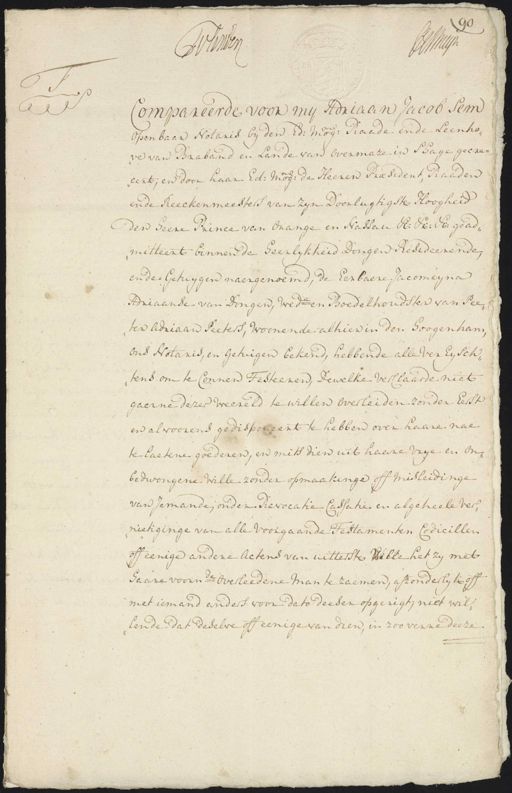 90
Compareerde voor my Adriaan Jacob Sem
Openbaar Notaris by den Ed: Mog: Raade inde Leenho,
ve van Braband en Lande van overmaze in S'Hage gecre,
eert, en door haar Ed: Mog: de Heeren President, Raaden
ende Reeckenmeesters van zyn Doorlugtigste Hoogheid
den Heere Prince van Orange en Nassau &c: &c: &c: gead,
mitteert binnen de Heerlykheid Dongen Resideerende,
ende Getuygen naergenoemd, de Eerbaere Jacomyna
Adriaanse van Dongen, Wed:e en Boedelhoudster van Pee,
ter Adriaan Peeters, woonende alhier in den Hoogenham,
ons Notaris, en Getuigen bekend, hebbende alle Vereysch,
tens om te Connen Testeeren, Dewelke verclaarde niet
gaerne deze Weereld te willen overleiden zonder Eerst
en alvoorens gedisponeert te hebben over haare nae
te laetene goederen, en mits dien uit haare Vrye en On,
bedwongene Wille zonder opmaakinge off Misleidinge
van Jemande, onder Revocatie Cassatie en algeheele Ver,
nietiginge van alle Voorgaande Testamenten Codicillen
off eenige andere Actens van uitterste Wille het zy met
Haare voorn: Overleedene Man te zaemen, afzonderlyk off
met iemand anders voor dato deeser opgerigt, niet wil,
lende dat deselve off eenige van dien, in zoo verre deeze